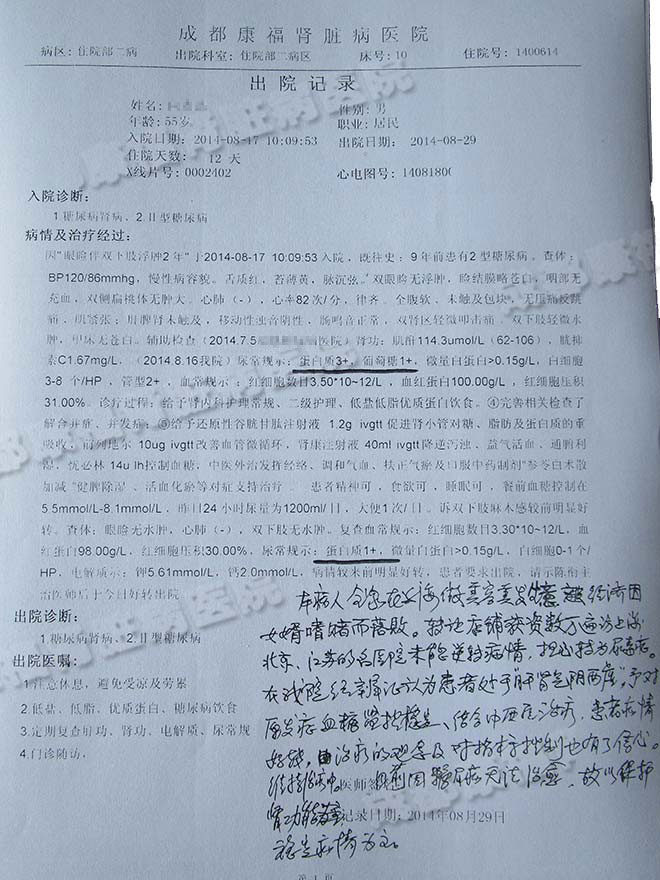 成都康福肾脏病医院
病区: 住院部二病 出院科室: 住院部二病区 床号: 10 住院号: 1400614
出院记录
姓名: 性别: 男
年龄: 55岁 职业: 居民
入院日期: 2014-08-17 10:09:53 出院日期: 2014-08-29
住院天数: 12 天
X线片号: 0002402 心电图号: 14081800
入院诊断:
1.糖尿病肾病、2.II型糖尿病
病情及治疗经过:
因"眼睑伴双下肢浮肿2年"于2014-08-17 10:09:53入院, 既往史: 9年前患有2型糖尿病。查体:
BP120/86mmhg, 慢性病容貌。舌质红, 苔薄黄, 脉沉弦。双眼睑无浮肿, 睑结膜略苍白, 咽部无
充血, 双侧扁桃体无肿大。心肺(-), 心率82次/分, 律齐。全腹软、未触及包块, 无压痛反跳
痛, 肌紧张; 肝脾肾未触及, 移动性浊音阴性, 肠鸣音正常, 双肾区轻微叩击痛。双下肢轻微水
肿, 甲床无苍白。辅助检查(2014.7.5 医院)肾功: 肌酐114.3umol/L (62-106), 胱抑
素C1.67mg/L, (2014.8.16我院)尿常规示: 蛋白质3+, 葡萄糖1+, 微量白蛋白>0.15g/L, 白细胞
3-8 个/HP, 管型2+, 血常规示: 红细胞数目3.50*10~12/L, 血红蛋白100.00g/L, 红细胞压积
31.00%。诊疗过程: 给予肾内科护理常规、二级护理、低盐低脂优质蛋白饮食。④完善相关检查了
解合并症、并发症; ⑧给予还原性谷胱甘肽注射液 1.2g ivgtt 促进肾小管对糖、脂肪及蛋白质的重
吸收, 前列地尔 10ug ivgtt 改善血管微循环, 肾康注射液 40ml ivgtt 降逆泻浊、益气活血、通腑利
湿, 优必林 14u Ih控制血糖, 中医外治发挥经络、调和气血、扶正气瘀及口服中药制剂"参苓白术散
加减"健脾除湿、活血化瘀等对症支持治疗。 患者精神可, 食欲可, 睡眠可, 餐前血糖控制在
5.5mmol/L-8.1mmol/L, 昨日24小时尿量为1200ml/日, 大便1次/日。诉双下肢麻木感较前明显好
转。查体: 眼睑无水肿, 心肺(-), 双下肢无水肿。复查血常规示: 红细胞数目3.30*10~12/L, 血
红蛋白98.00g/L, 红细胞压积30.00%, 尿常规示: 蛋白质1+, 微量白蛋白>0.15g/L, 白细胞0-1个/
HP, 电解质示: 钾5.61mmol/L, 钙2.0mmol/L, 病情较来前明显好转, 患者要求出院, 请示陈衔主
治医师后于今日好转出院
出院诊断:
1.糖尿病肾病、2.II型糖尿病
出院医嘱:
1.注意休息, 避免受凉及劳累
2.低盐、低脂、优质蛋白、糖尿病饮食
3.定期复查肝功、肾功、电解质、尿常规
4.门诊随访。
本病人全家在上海做 经济因
女婿嗜赌而落败。转让店铺获资数万遍访上海
北京、江苏的名医院未能逆转病情, 担心转为尿毒症。
在我院经辨证认为患者处于"肝肾气阴两虚", 予对
原发症血糖监控稳定、结合中西医治疗, 患者病情
好转, 由治疗的观念及对指标控制也有了信心。
维持治疗中。 目前因糖尿病无法治愈, 故以保护
肾功能
稳定病情为主。
医师签
记录日期: 2014年08月29日
第 1 页